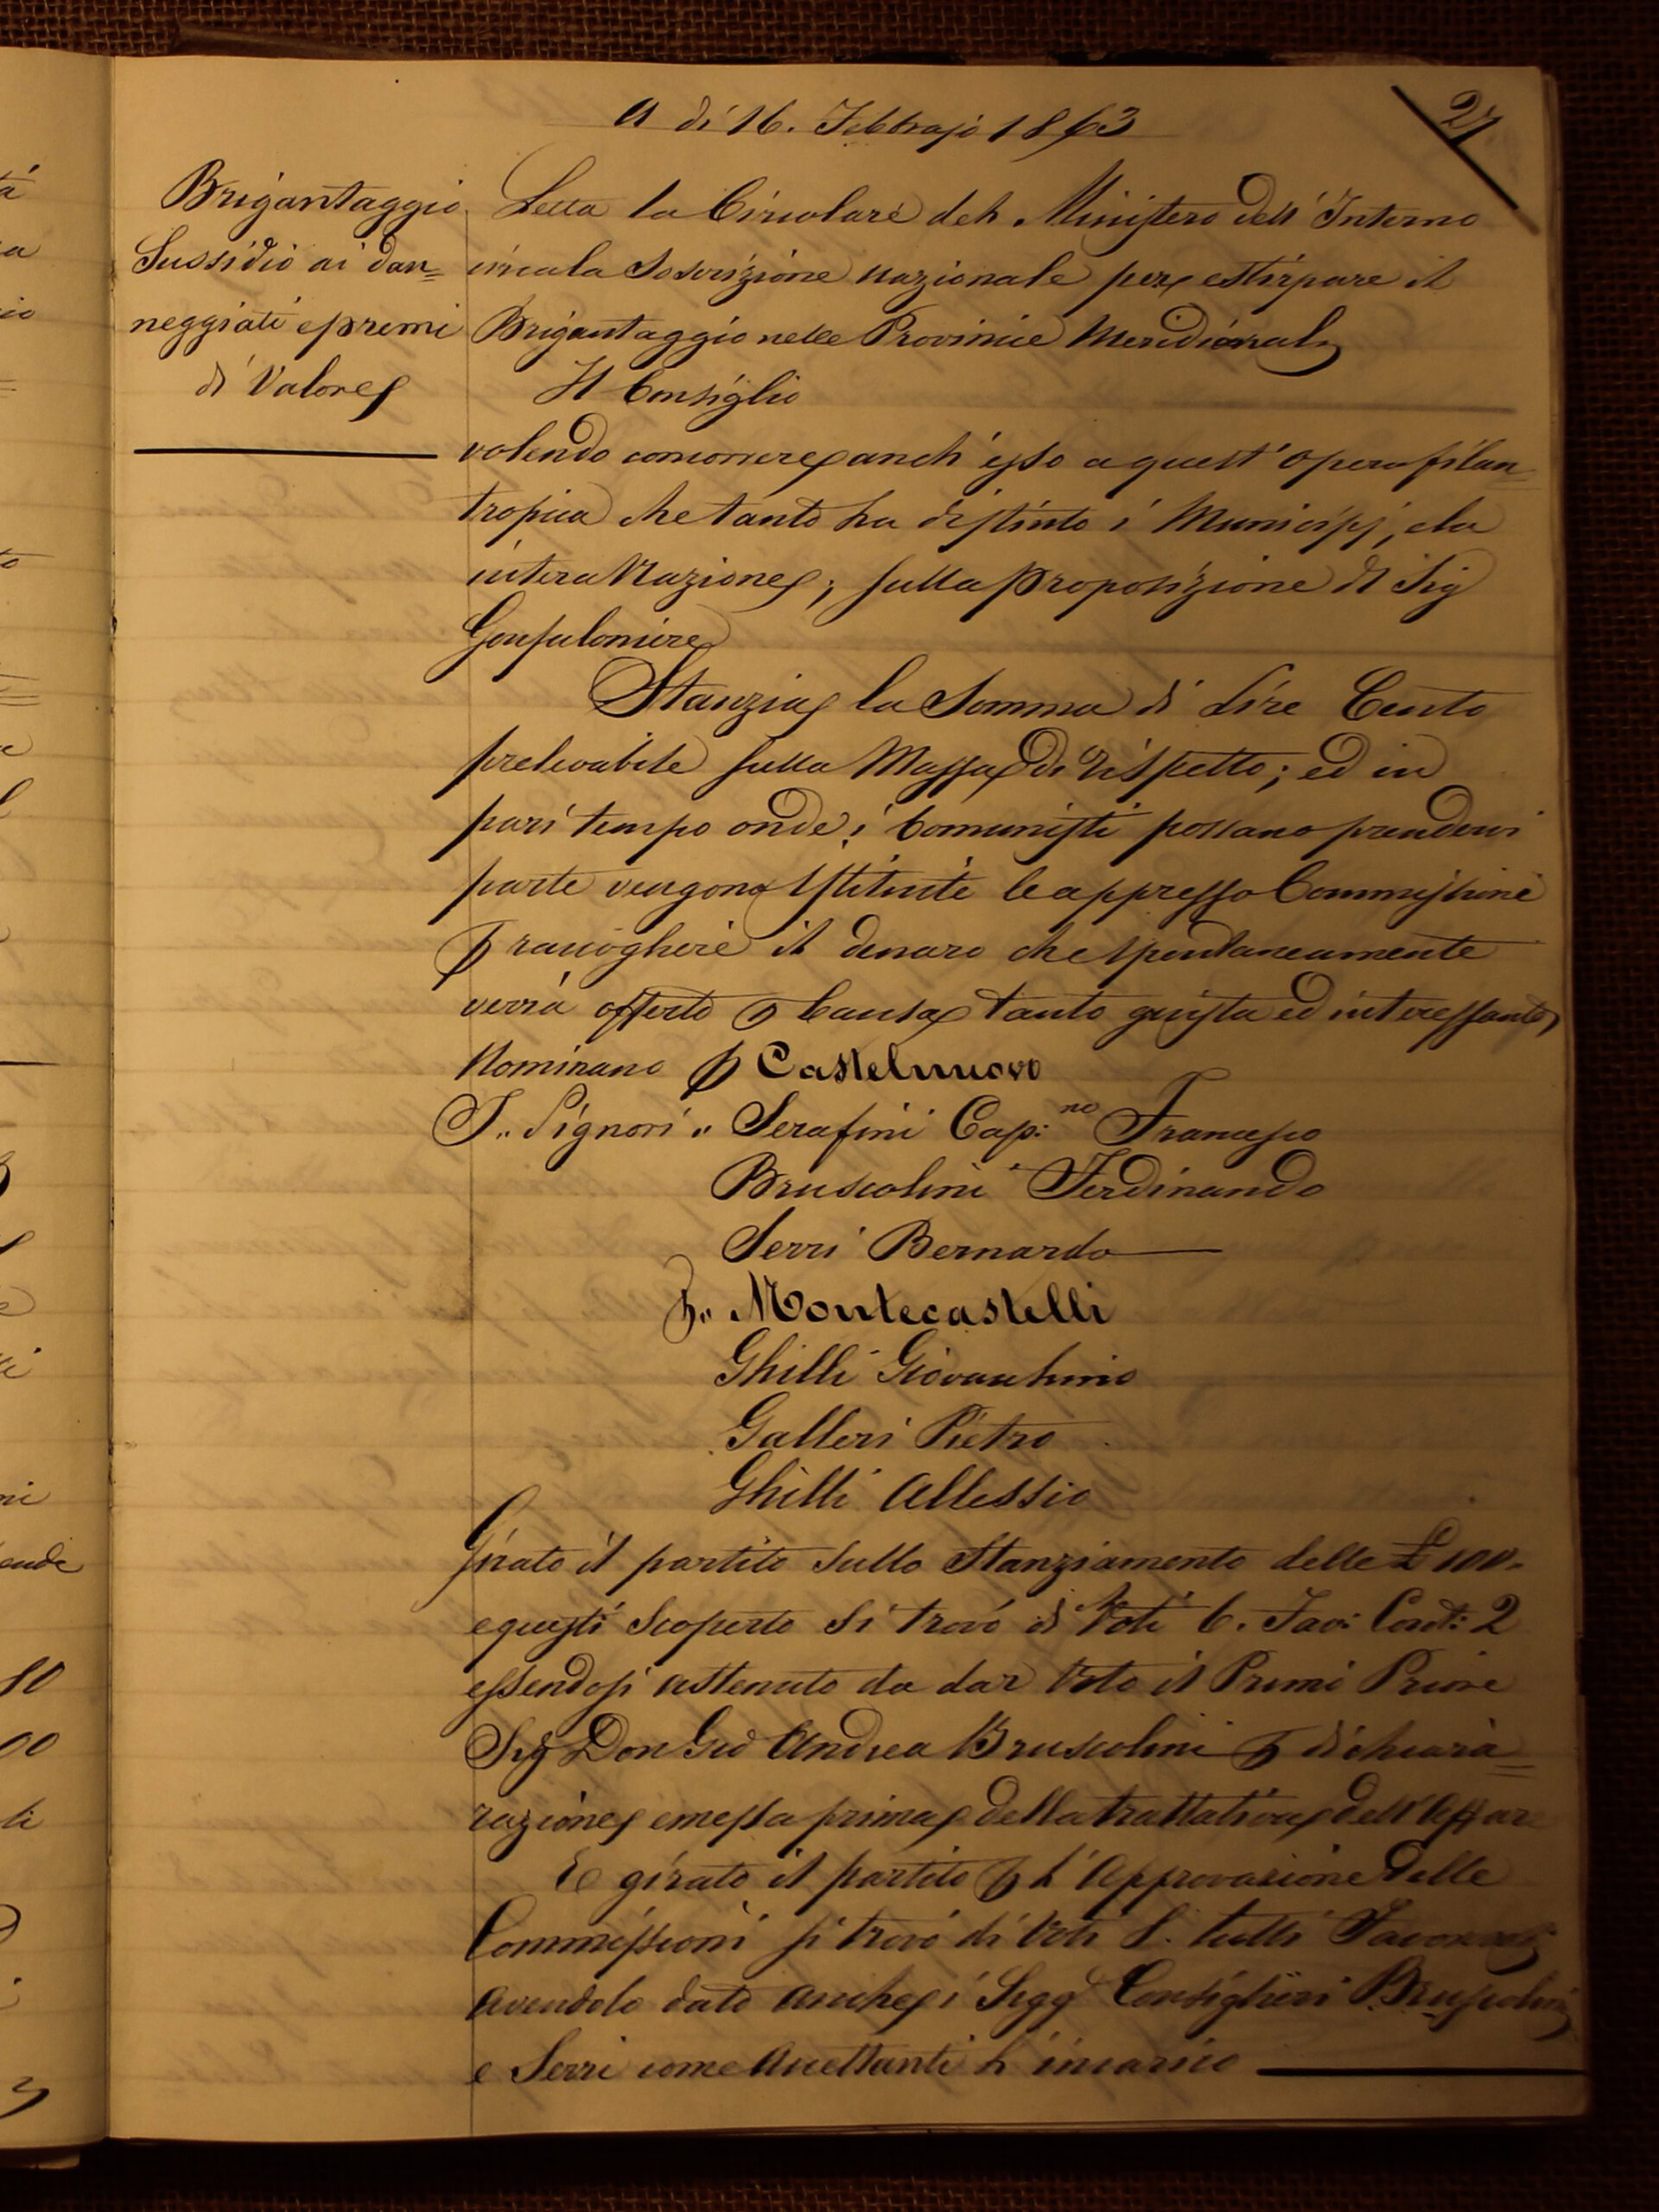 A dì 16. Febbrajo 1863
27
Brigantaggio
Sussidio ai dan=
neggiati e premi
di Valore
Letta la Circolare del Ministero dell'Interno
circa la Soscrizione nazionale per estirpare il
Brigantaggio nelle Provincie Meridionali
Il Consiglio
volendo concorrere anch'esso a quest'opera filan=
tropica che tanto ha distinto i Municipj, e la
intera Nazione; sulla proposizione del Sig
Gonfaloniere
Stanzia la Somma di Lire Cento
prelevabile sulla Massa di rispetto; ed in
pari tempo onde i Comunisti possano prendervi
parte vengono istituite le appresso Commissioni
p raccogliere il denaro che spontaneamente
verrà offerto p Causa tanto giusta ed interessante
Nominano p Castelnuovo
I.. Signori.. Serafini Cap:no Francesco
Bruscolini Ferdinando
Serri Bernardo
p.. Montecastelli
Ghilli Giovacchino
Galleri Pietro
Ghilli Allessio
Girato il partito sullo Stanziamento delle £ 100.
e questi scoperto si trovò di Voti 6. Fav: Cont: 2
essendosi astenuto da dar Voto il Primo Priore
Sig Don Gio Andrea Bruscolini p dichiara=
razione emessa prima della trattativa dell'Affare
E girato il partito p l'Approvazione delle
Commissioni si trovò di Voti 8. tutti Favorevoli
avendolo dato anche i Sigg Consiglieri Bruscolini
e Serri come Accettanti l'incarico